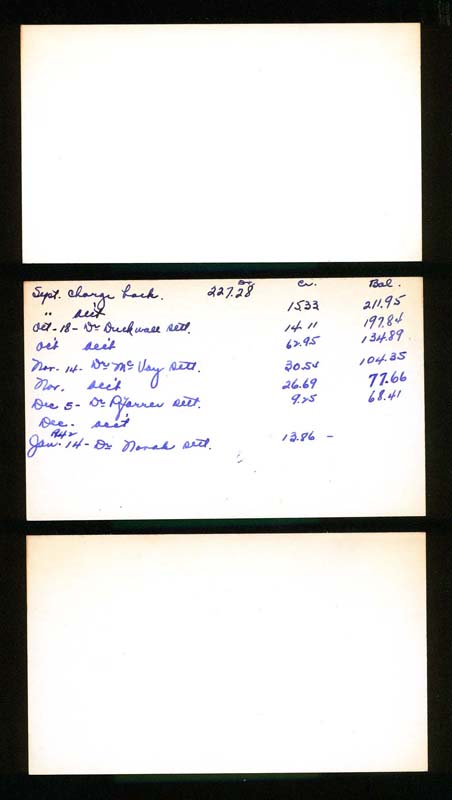 Dr. Cr. Bal.
Sept. Charge back. 227.28
" 15.33 211.95
Oct-18- Dr Duckwall sett. 14.11 197.84
Oct 62.95 134.89
Nov. 14- Dr McVay sett. 30.54 104.35
Nov. 26.69 77.66
Dec 5- Dr sett. 9.25 68.41
Dec.
Jan. 14- Dr Novak sett. 13.86 -